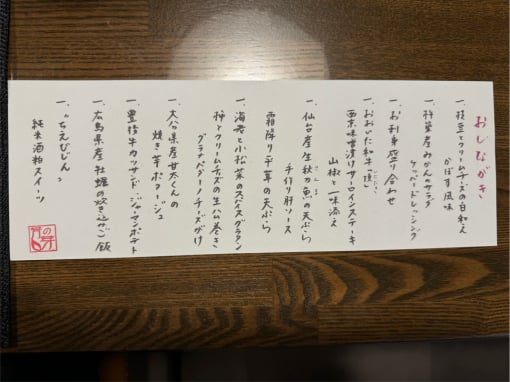 おしながき
一、枝豆とクリームチーズの白和え
かぼす風味
一、杵築産みかんのサラダ
ペッパードレッシング
一、お刺身盛り合わせ
一、おおいた和牛「頂」
西京味噌漬けサーロインステーキ
山椒と一味添え
一、仙台産生秋の魚の天ぷら
手作り肝ソース
霜降り平茸の天ぷら
一、海老と小松菜のスパイスグラタン
柿とクリームチーズの生ハム巻き
グラナパダーノチーズがけ
一、大分県産甘太くんの
焼き芋ポタージュ
一、豊後牛カツサンド、ジャーマンポテト
一、広島県産牡蠣の炊き込みご飯
一、"ちえびじん"
純米酒粕スイーツ